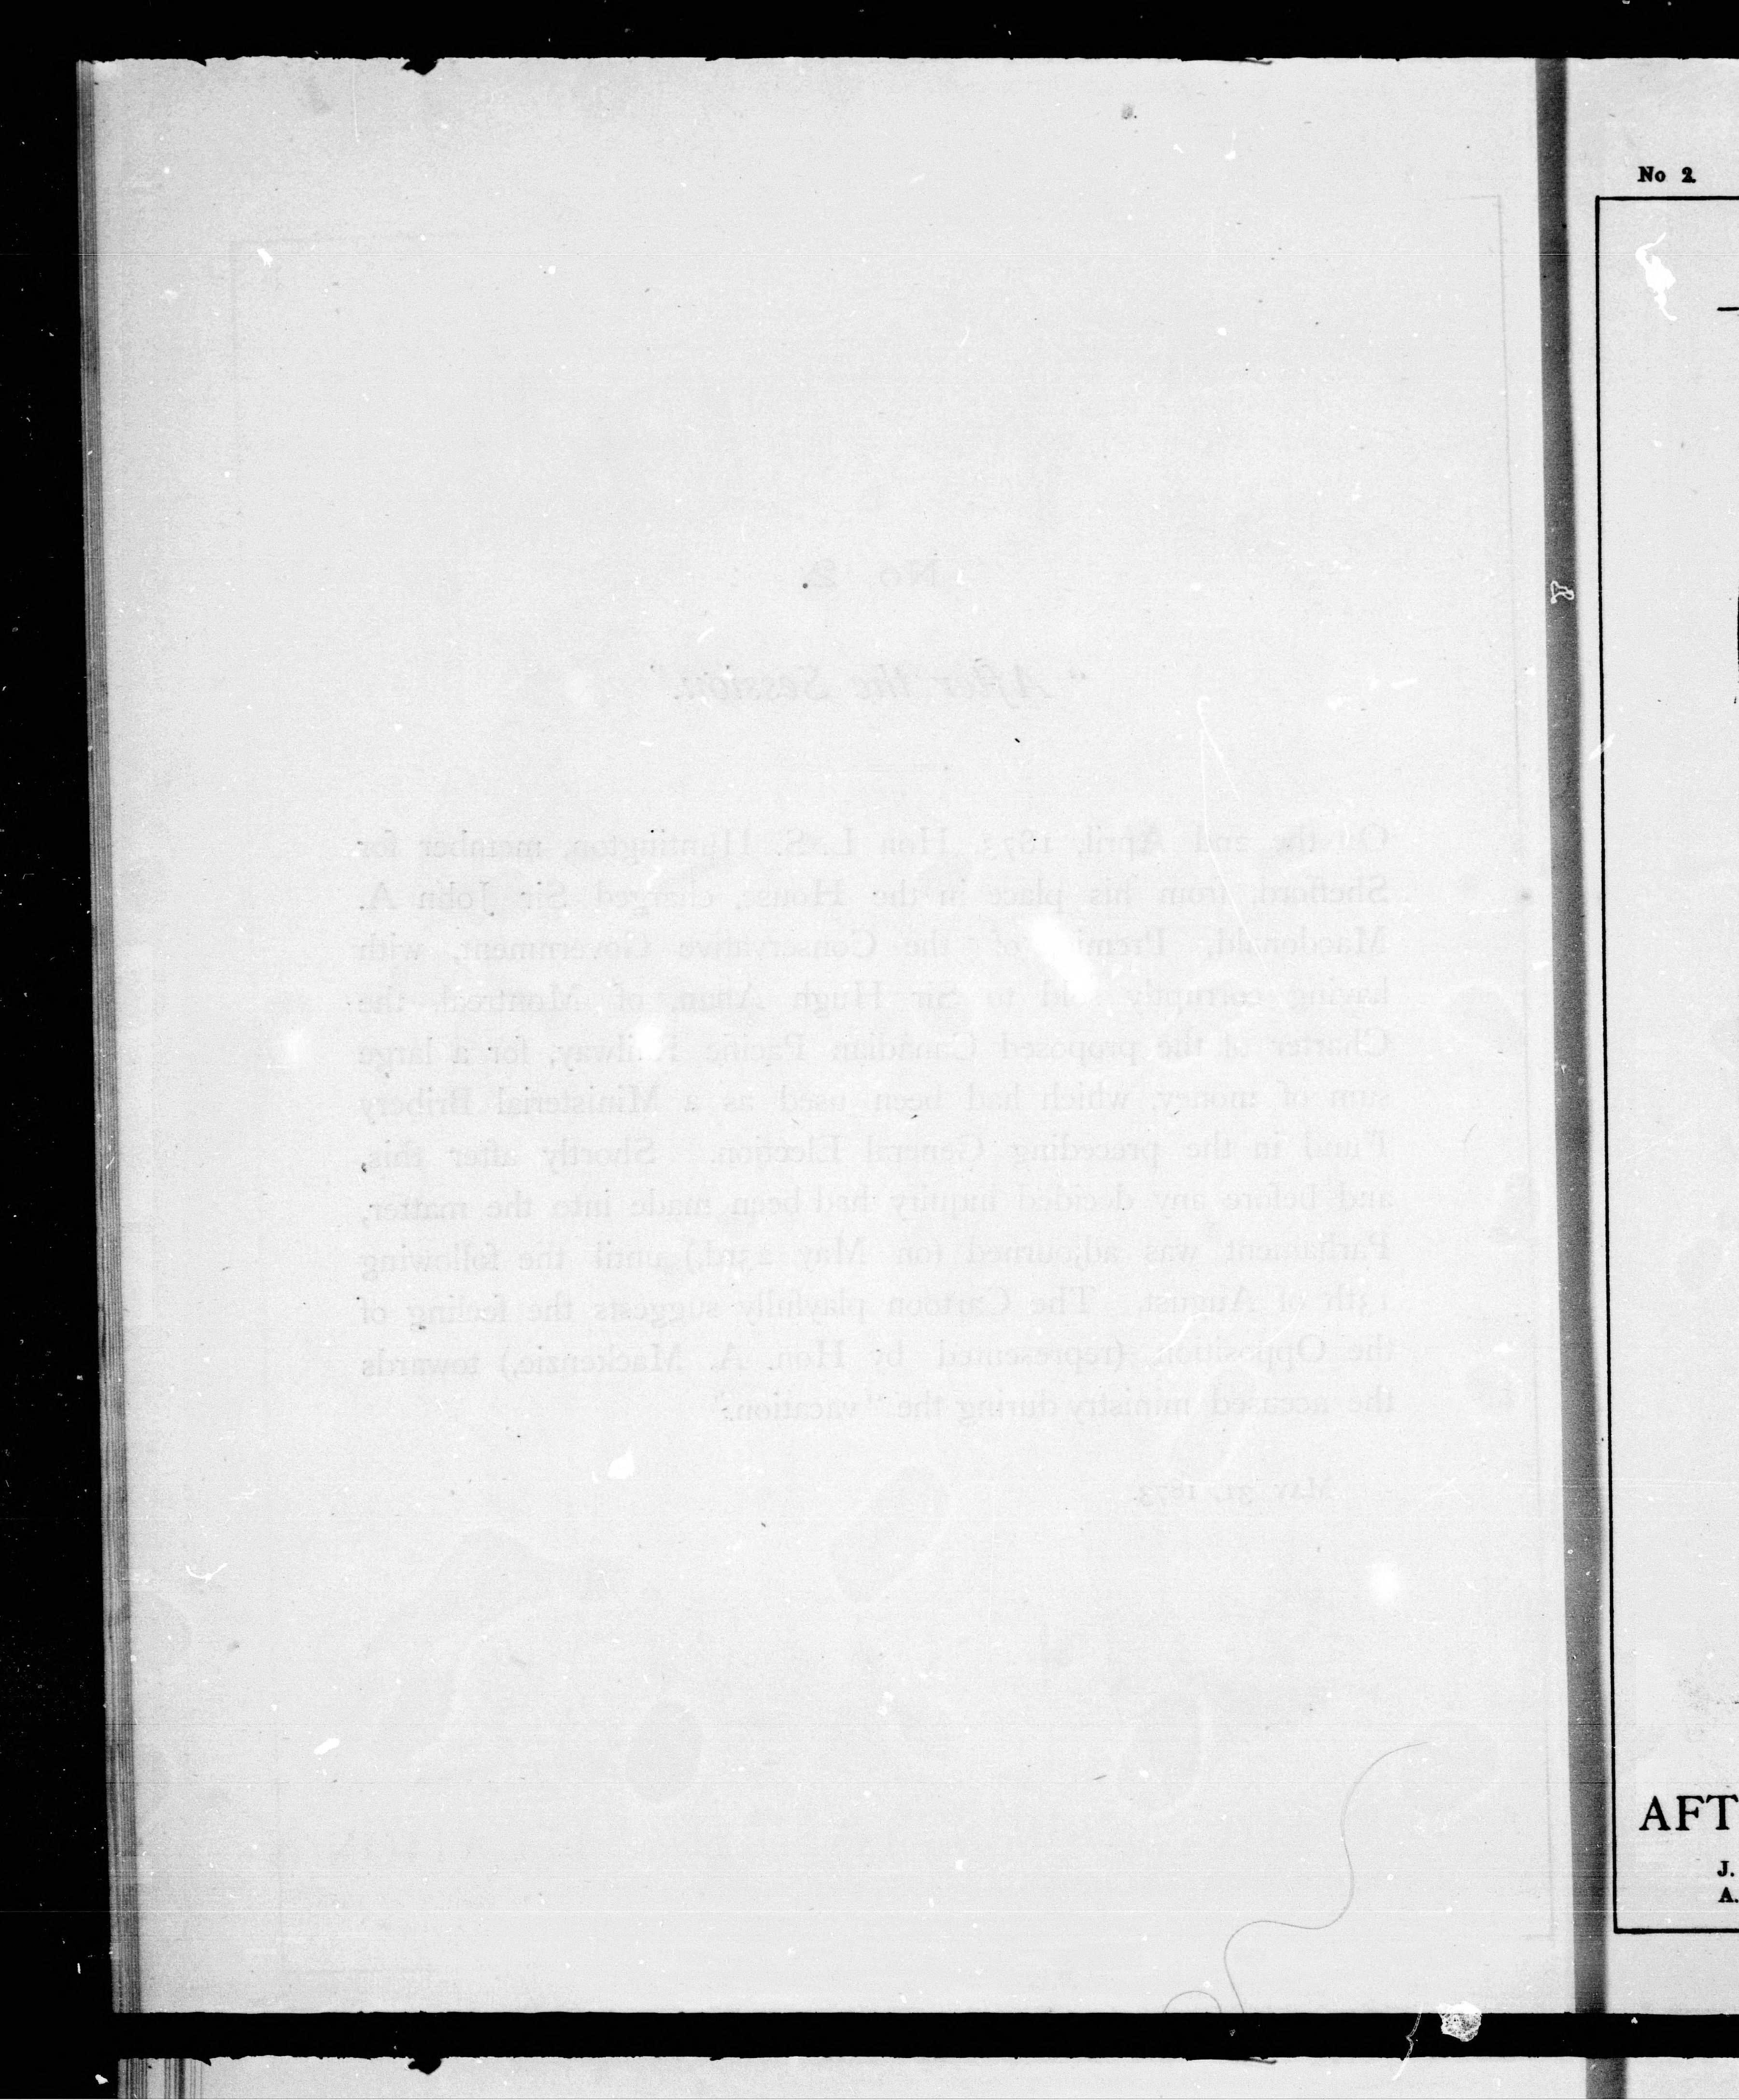 No 2.
"After the Session."
On the 2nd April, 1873, Hon L. S. Huntington, member for
Shefford, from his place in the House, charged Sir John A.
Macdonald, Premier of the Conservative Government, with
having corruptly sold to Sir Hugh Allan, of Montreal, the
Charter of the proposed Canadian Pacific Railway, for a large
sum of money, which had been used as a Ministerial Bribery
Fund in the preceding General Election. Shortly after this,
and before any decided inquiry had been made into the matter,
Parliament was adjourned (on May 23rd,) until the following
13th of August. The Cartoon playfully suggests the feeling of
the Opposition (represented by Hon. A. Mackenzie,) towards
the accused ministry during the "vacation."
May 31, 1873.
No 2.
AFT
J.
A.